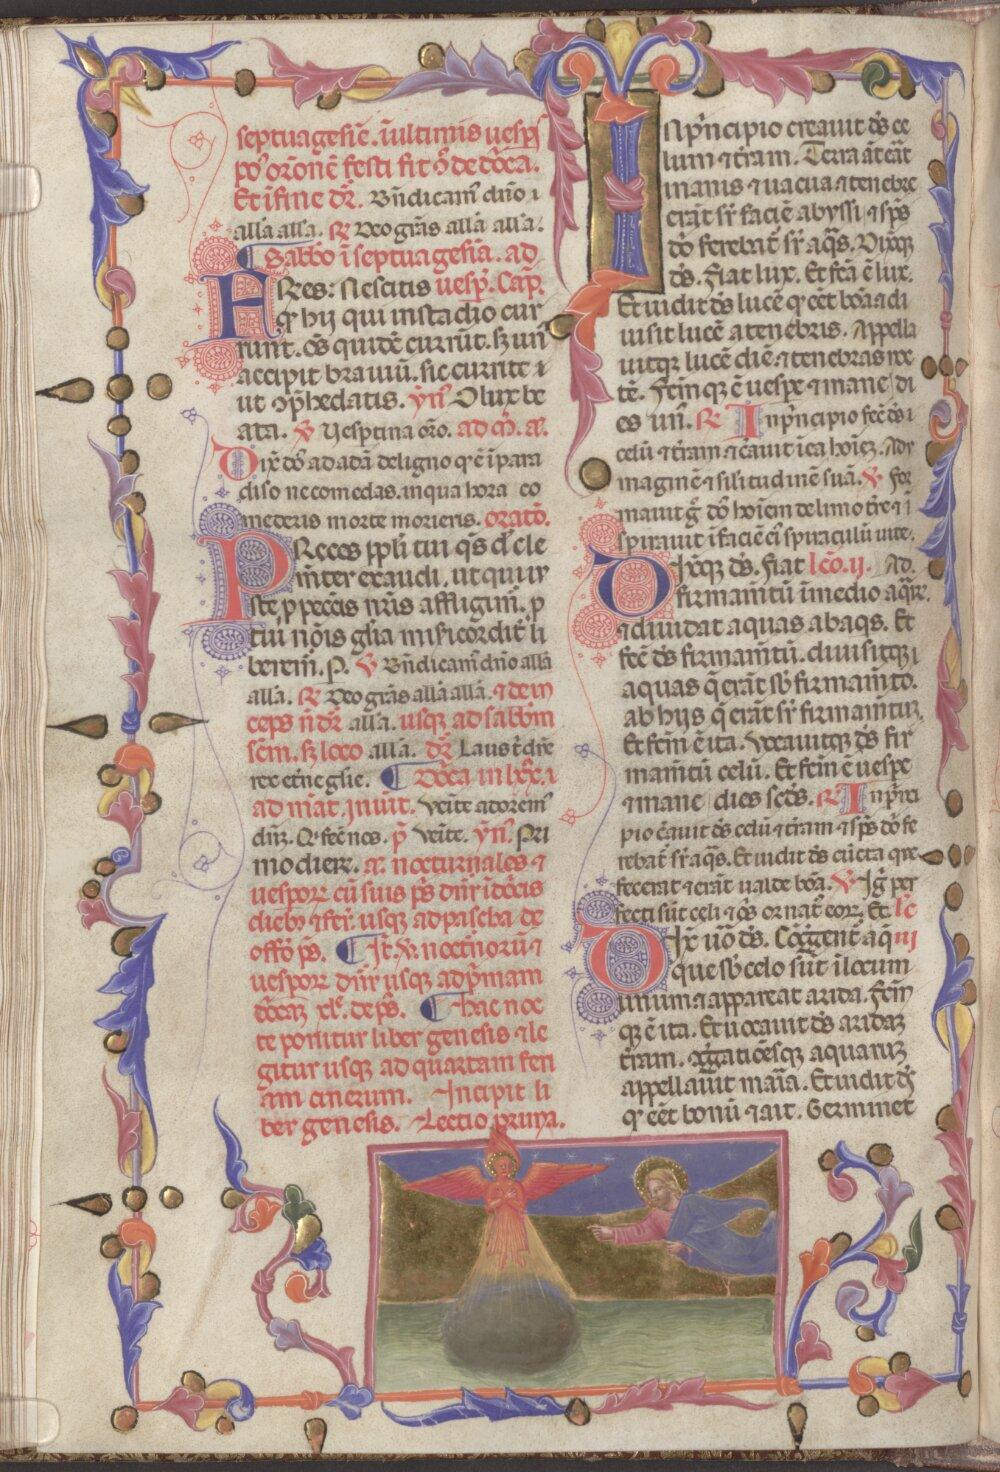 septuagesie. i ultimis uesp̄s
po' orōnē festi fit 9̄ de dn̄ica.
Et i fine dr̄. Bn̄dicam' dn̄o i
alla alla. ℟ Deo grās alla alla.
¶ Sabbo i septuagesia. ad
FRes: Nescitis uesp̄. Cap̄.
qr hij qui in stadio cur
runt. oēs quidē currūt. sz un'
accipit brauiū. sic currite i
ut 9p̄hēdatis. yn̄. O lux be
ata. ℣ Uesptina oro. ad m̄. a.
Dix̄ dn̄s ad adā de ligno qr ē i para
diso ne comedas. in qua hora co
mederis morte morieris. orato.
PReces ppli tui qs dn̄e cle
mēter exaudi. ut qui iu
ste p peccīs nr̄is affligim̄. p
tui noīs glīa misericordit' li
berem̄. P. ℣ Bn̄dicam' dn̄o alla
alla. ℟ Deo grās alla alla. ⁊ dein
ceps n̄ dr̄ alla. usqz ad sabbm̄
scm̄. sz loco alla. dr̄ Laus t' dn̄e
rex etn̄e glīe. ¶ Dn̄ica in lxx. i
ad mat. Inuit. Venite adorem'
dn̄z. Qr fec nos. p̄ Venite. yn̄. Pri
mo dierz. a. nocturnales ⁊
uesporz cū suis ps dn̄r i dn̄icis
dieb; ⁊ fer. usqz ad pascha de
offo ps. ¶ It. ℣. noctnorū ⁊
uesporz dn̄r usqz ad p̄mam
dn̄icaz xl. de ps. ¶ Hac noc
te ponitur liber genesis ⁊ le
gitur usqz ad quartam feri
am cinerum. Incipit li
ber genesis. Lectio prima.
IN p̄ncipio creauit ds ce
lum ⁊ t̄ram. Terra āt erāt
inanis ⁊ uacua ⁊ tenebre
erāt sr faciē abyssi ⁊ sp̄s
do ferebat' sr aqs. Dixitqz
ds. Fiat lux. Et fcā ē lux.
Et uidit ds lucē qr eēt bōa ⁊ di
uisit lucē a tenebris. Appella
uitqr lucē diē ⁊ tenebras noc
tē. Fcm̄ qz ē uespe ⁊ mane di
es un'. ℟ In p̄ncipio fec ds i
celū ⁊ t̄ram ⁊ c̄auit i ea hoiez. Ad y
maginē ⁊ silitudinē suā. ℣ For
mauit g do hoiem de limo t̄re ⁊ i
spirauit i faciē ei spiraculū uite.
DIxitqz ds. Fiat lc̄o. ij. Ad.
firmam̄tū i medio aqrz.
⁊ diuidat aquas ab aqs. Et
fec ds firmam̄tū. diuisitqz i
aquas q̄ erāt sb firmam̄to.
ab hijs q̄ erāt sr firmam̄tuz.
Et fcm̄ ē ita. Vocauitqz ds fir
mam̄tū celū. Et fcm̄ ē uespe
⁊ mane dies scds. ℟ In p̄nci
pio c̄auit ds celū ⁊ t̄ram ⁊ sp̄s do fe
rebat' sr aqs. Et uidit ds cūcta que
fecerat ⁊ erāt ualde bōa. ℣ Ig̓ per
fecti sūt celi ⁊ oīs ornat' eorz. Et. lc̄
DIx̄ uo ds. Cōgregent' aq̄ iij
que sb celo sūt i locum
unum ⁊ appareat arida. Fcm̄
qz ē ita. Et uocauit ds aridaz
t̄ram. 9gregatiōesqz aquaruz
appellauit maria. Et uidit ds
qr eēt bonū ⁊ ait. Germinet